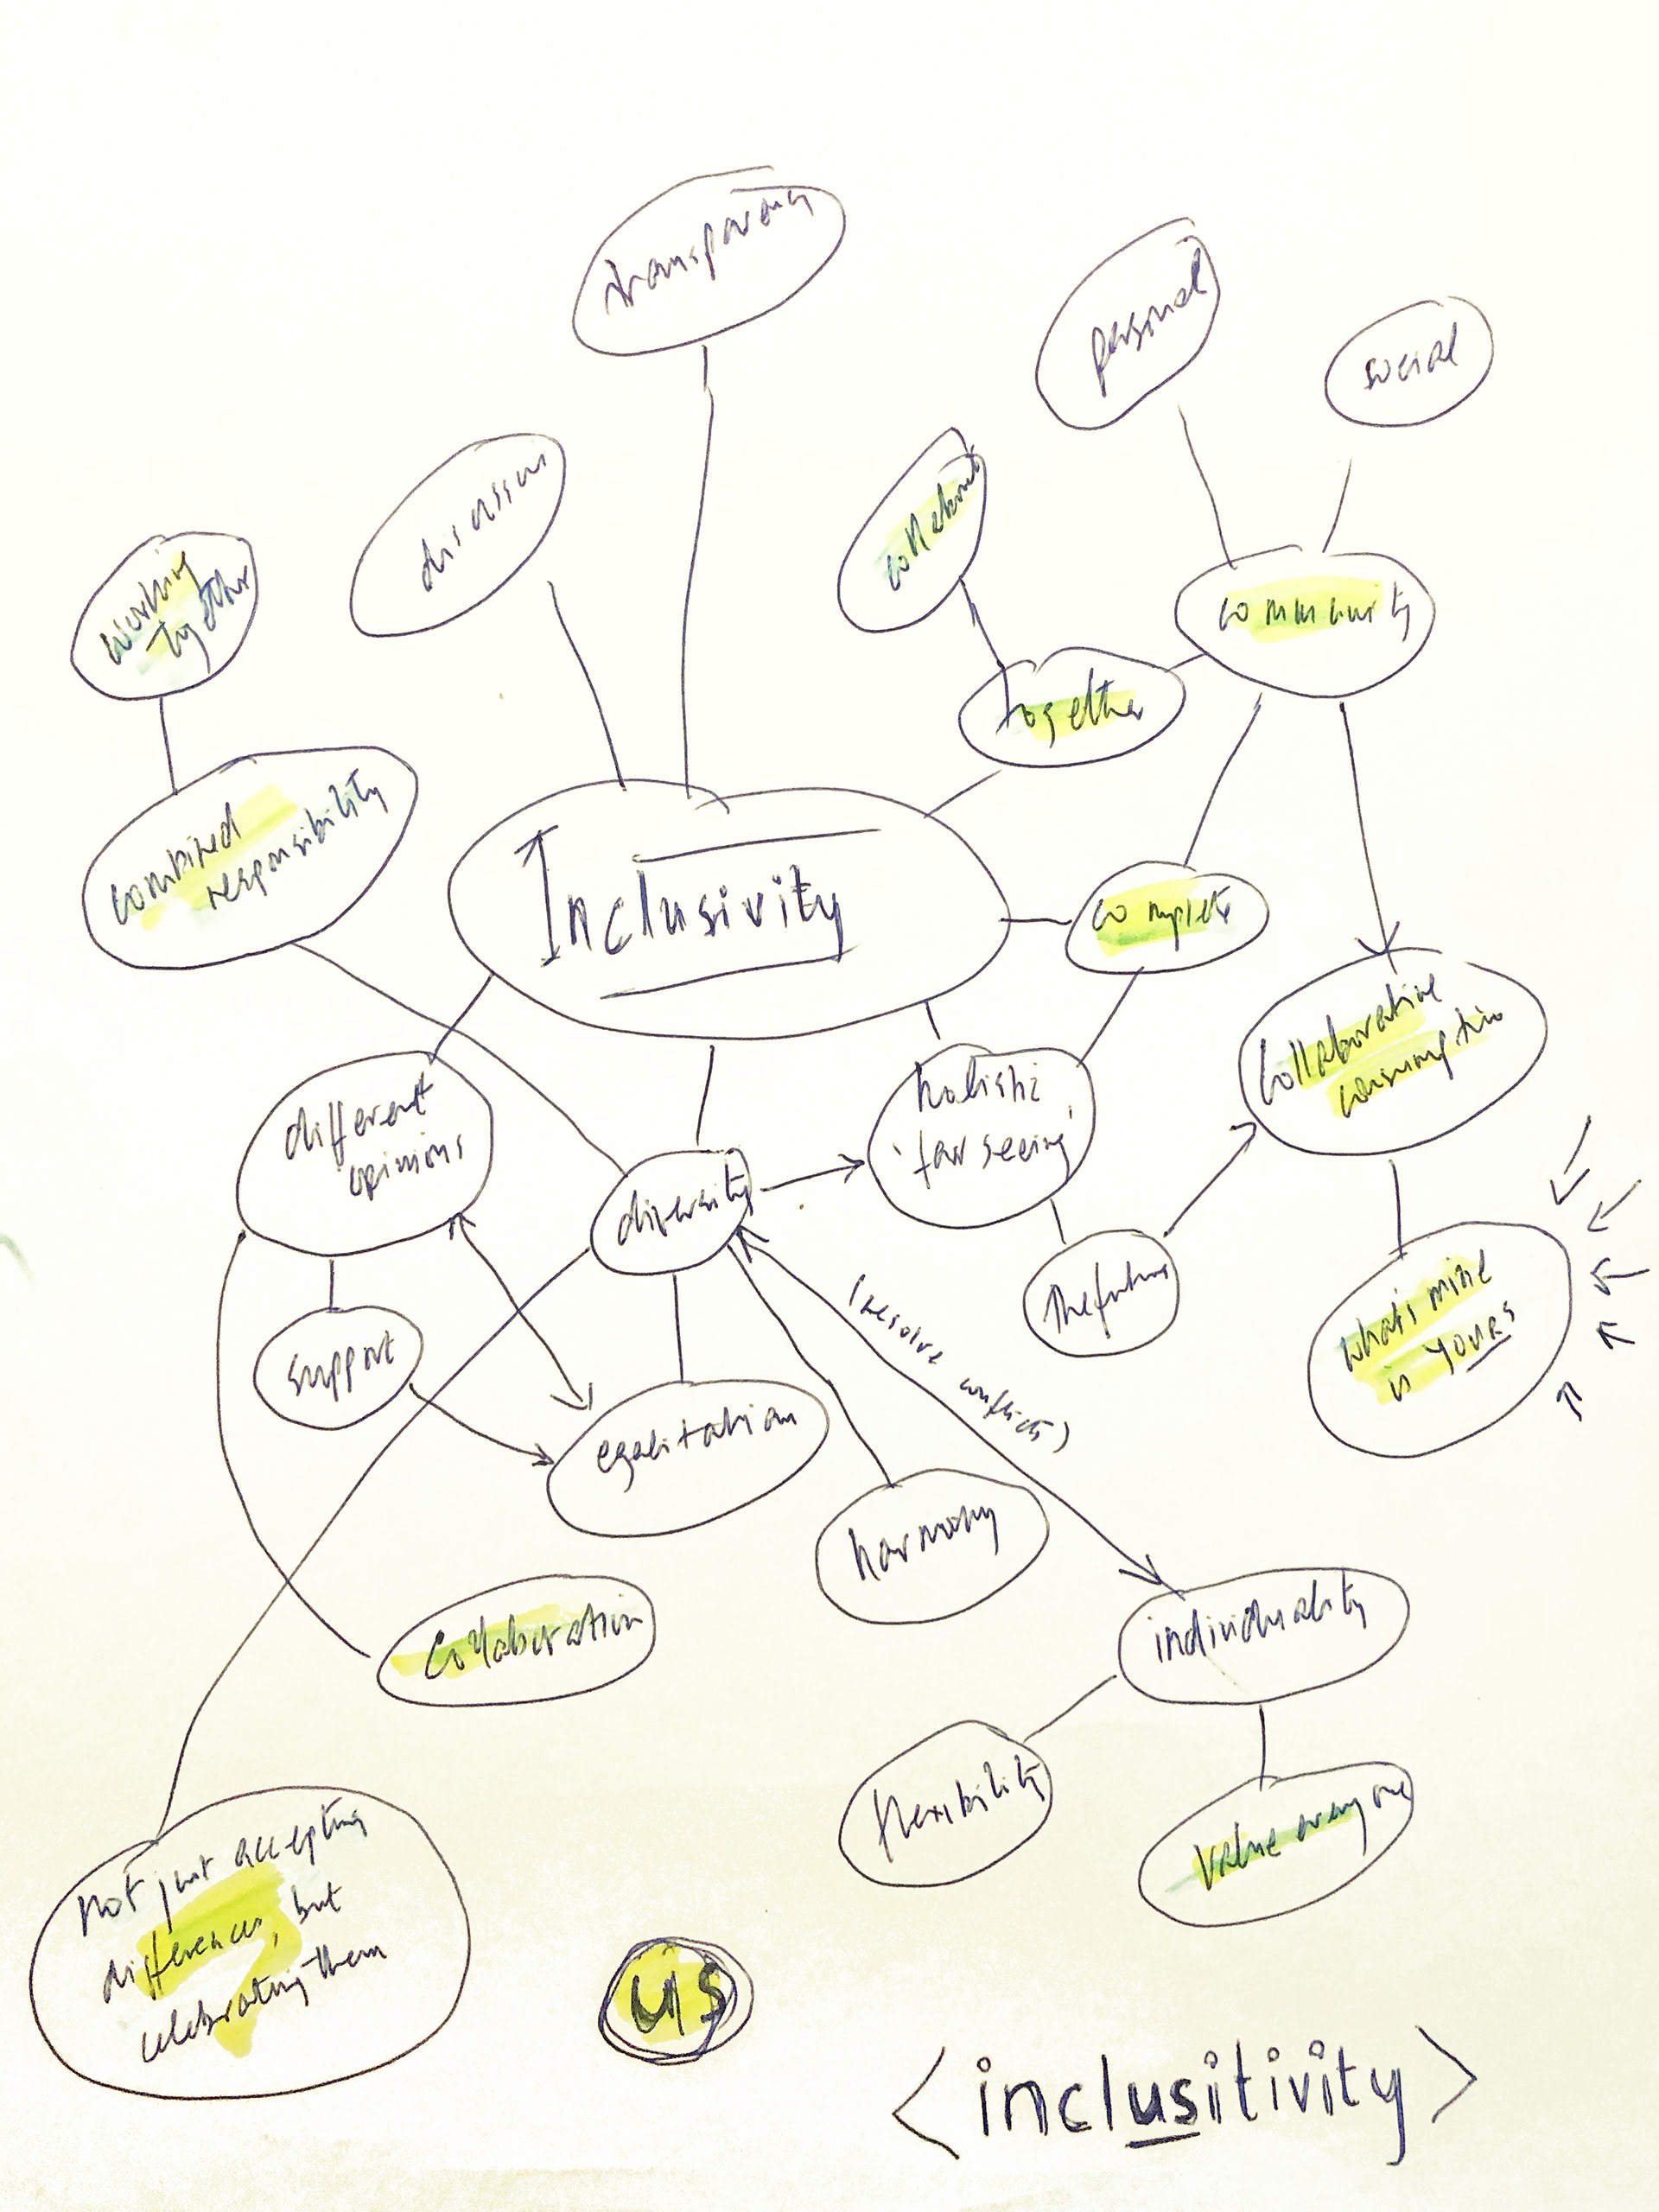 transparency
personal
social
discussion
collaborate
working
together
community
together
combined
responsibility
Inclusivity
complete
collaborative
consumption
different
opinions
holistic
'far seeing'
diversity
the future
what's mine
is yours
(resolve conflicts)
support
egalitarian
harmony
collaboration
individuality
flexibility
value everyone
not just accepting
differences, but
celebrating them
us
<inclusitivity>